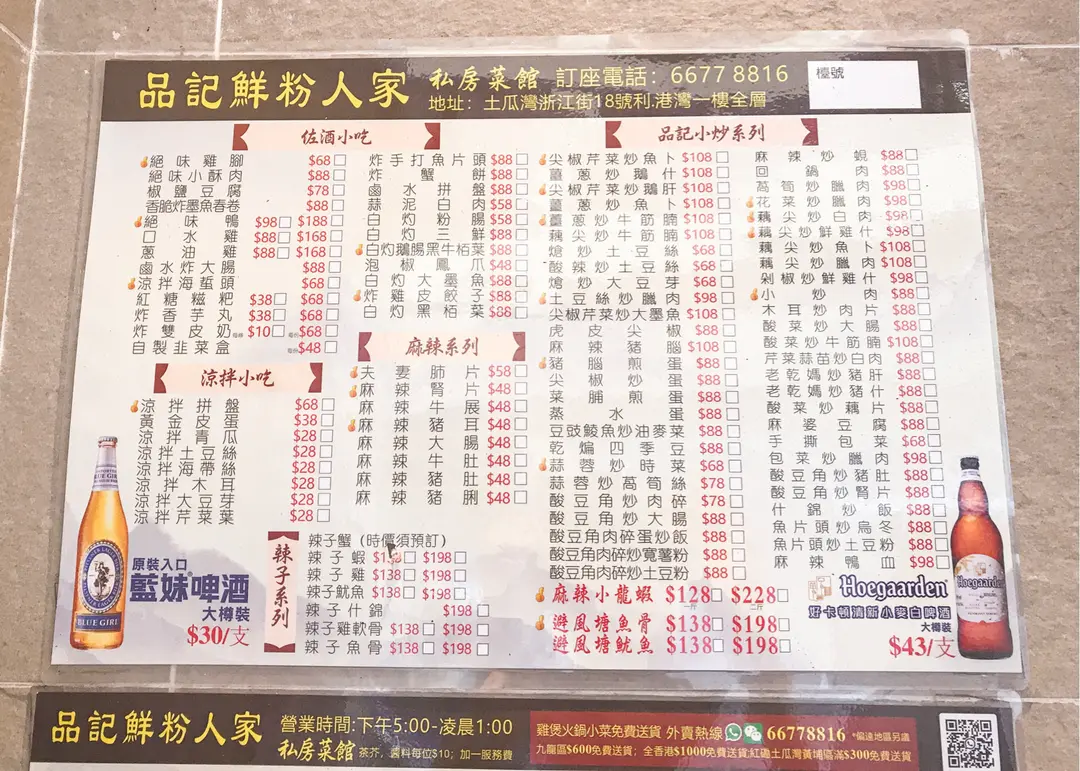 品記鮮粉人家 私房菜館 訂座電話：6677 8816 檯號
地址：土瓜灣浙江街18號利.港灣一樓全層
佐酒小吃
絕味雞腳 $68
絕味小酥肉 $68
椒鹽豆腐 $78
香脆炸墨魚春卷 $88
絕味鴨 $98 $188
口水雞 $88 $168
蔥油雞 $88 $168
鹵水炸大腸 $88
涼拌海蜇頭 $68
紅糖糍粑 $38 $68
炸香芋丸 $38 $68
炸雙皮奶 $10 $68
自製韭菜盒 $48
涼拌小吃
涼拌拼盤 $68
黃金皮蛋 $38
涼拌青瓜 $28
涼拌土豆絲 $28
涼拌海帶絲 $28
涼拌木耳 $28
涼拌大豆芽 $28
涼拌芹菜葉 $28
炸手打魚片頭 $88
炸蟹餅 $88
鹵水拼盤 $88
蒜泥白肉 $58
白灼粉腸 $58
白灼三鮮 $88
白灼鵝腸黑牛栢葉 $88
泡椒鳳爪 $48
白灼大墨魚 $88
炸雞皮餃子 $88
白灼黑栢葉 $88
麻辣系列
夫妻肺片 $58
麻辣腎片 $48
麻辣牛展 $48
麻辣豬耳 $48
麻辣大腸 $48
麻辣牛肚 $48
麻辣豬肚 $48
麻辣豬脷 $48
辣子系列
辣子蟹 (時價須預訂)
辣子蝦 $198
辣子雞 $138 $198
辣子魷魚 $138 $198
辣子什錦 $198
辣子雞軟骨 $138 $198
辣子魚骨 $138 $198
品記小炒系列
尖椒芹菜炒魚卜 $108
薑蔥炒鵝什 $108
尖椒芹菜炒鵝肝 $108
薑蔥炒魚卜 $108
薑蔥炒牛筋腩 $108
藕尖炒牛筋腩 $108
熗炒土豆絲 $68
酸辣炒土豆絲 $68
熗炒大豆芽 $68
土豆絲炒臘肉 $98
尖椒芹菜炒大墨魚 $108
虎皮尖椒 $88
麻辣豬腦 $108
豬腦煎蛋 $88
尖椒炒蛋 $88
菜脯煎蛋 $88
蒸水蛋 $88
豆豉鯪魚炒油麥菜 $88
乾煸四季豆 $88
蒜蓉炒時菜 $68
蒜蓉炒萵筍絲 $78
酸豆角炒肉碎 $78
酸豆角炒大腸 $88
酸豆角肉碎蛋炒飯 $88
酸豆角肉碎炒寬薯粉 $88
酸豆角肉碎炒土豆粉 $88
麻辣小龍蝦 $128 $228
避風塘魚骨 $138 $198
避風塘魷魚 $138 $198
麻辣炒蜆 $88
回鍋肉 $88
萵筍炒臘肉 $98
花菜炒臘肉 $98
藕尖炒白肉 $98
藕尖炒鮮雞什 $98
藕尖炒魚卜 $108
藕尖炒臘肉 $108
剁椒炒鮮雞什 $98
小炒肉 $88
木耳炒肉片 $88
酸菜炒大腸 $88
酸菜炒牛筋腩 $108
芹菜蒜苗炒白肉 $88
老乾媽炒豬肝 $88
老乾媽炒豬什 $88
酸菜炒藕片 $88
麻婆豆腐 $88
手撕包菜 $68
包菜炒臘肉 $98
酸豆角炒豬肚 $88
酸豆角炒腎片 $88
什錦炒飯 $88
魚片頭炒烏冬 $88
魚片頭炒土豆粉 $88
麻辣鴨血 $98
原裝入口
藍妹啤酒
大樽裝
$30/支
BLUE GIRL
Hoegaarden
好卡頓清新小麥白啤酒
大樽裝
$43/支
品記鮮粉人家 營業時間:下午5:00-凌晨1:00
私房菜館 茶芥，醬料每位$10；加一服務費
雞煲火鍋小菜免費送貨 外賣熱線 66778816 *偏遠地區另議
九龍區$600免費送貨；全香港$1000免費送貨紅磡土瓜灣黃埔區滿$300免費送貨